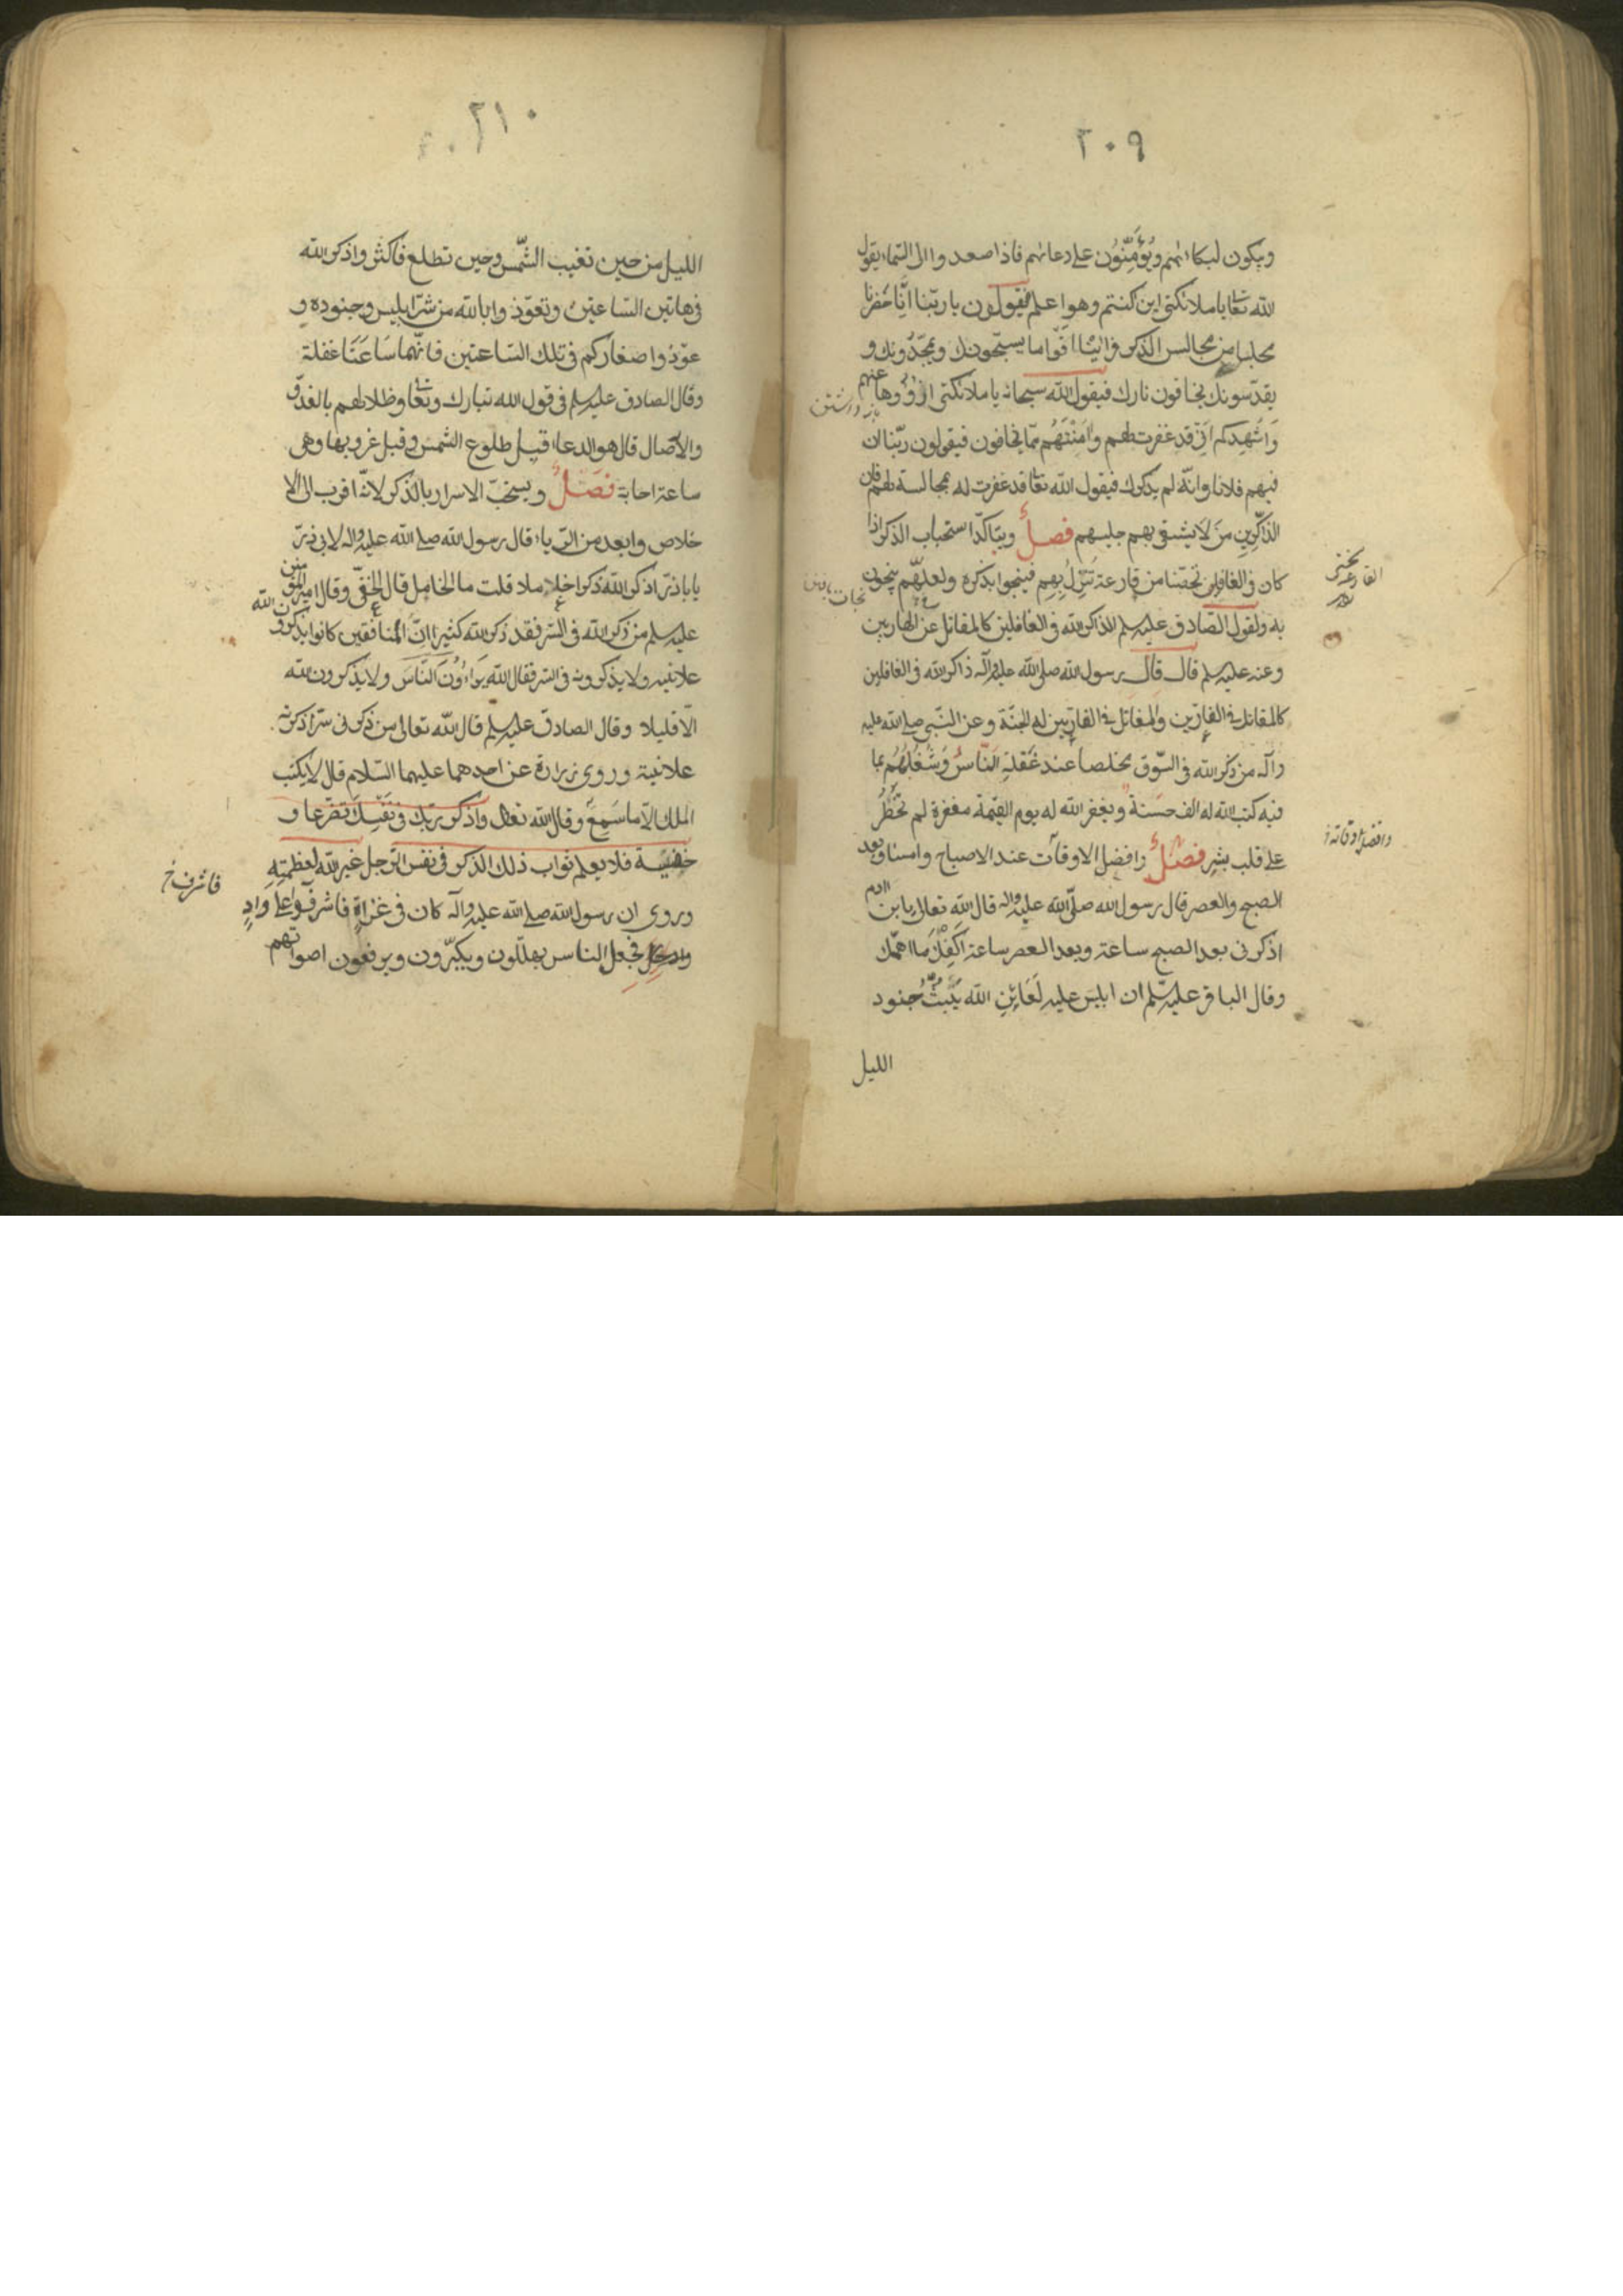 ٢٠٩
ويكون لبكائهم ويؤمنون على دعائهم فاذا صعدوا الى السماء يقول
الله تعا يا ملائكتى اين كنتم وهو اعلم فيقولون يا ربنا انا حضرنا
مجلسا من مجالس الذكر فراينا اقواما يسبحونك ويمجدونك و
يقدسونك يخافون نارك فيقول الله سبحانه يا ملائكتى ازووها عنهم
وَاشهدكم انّى قد غفرت لهم وآمَنْتُهُم ممّا يخافون فيقولون ربّنا ان
فيهم فلانا وانّه لم يذكرك فيقول الله تعا قد غفرت له بمجالسته لهم فان
الذاكرين من لا يشقى بهم جليسهم فصلٌ ويتاكّد استحباب الذكر اذا
كان فى الغافلين تحصّنا من قارعة تَنْزِلُ بِهِم فينجوا بذكره ولعلهّم ينجون
به ولقول الصّادق عليه سلم الذاكر لله فى الغافلين كالمقاتل عن الهاربين
وعنه عليه سلم قال قال رسول الله صلى الله عليه وآله ذاكر الله فى الغافلين
كالمقاتل فى الفارّين والمقاتل فى الفارّين له الجنّة وعن النّبى صلى الله عليه
وآله من ذكر الله فى السّوق مخلصا عند غَفلةِ النّاس وَشُغُلُهُم بما
فيه كتب الله له الف حسَنة ويغفر الله له يوم القيمة مغفرة لم تخْطُرُ
على قلب بشرٍ فصلٌ وافضل الاوقات عند الاصباح وامساء وبعد
الصبح والعصر قال رسول الله صلّى الله عليه واله قال الله تعالى يا بن ادم
اذكرنى بعد الصبح ساعة وبعد العصر ساعة اكفِكَ مَا اهمّك
وقال الباقر عليه سلم ان ابليس عليه لَعَاين الله يَبُثُّ جنود
الليل
القارعة
وافضل اوقاته
فاشرف خ
٢١٠
الليل من حين تغيب الشّمس وحين تطلع فاكثروا ذكر الله
فى هاتين السّاعتين وتعوّذوا بالله من شرّ ابليس وجنوده و
عوّذوا صغاركم فى تلك السّاعتين فانّهما سَاعَتَا غفلة
وقال الصادق عليه سلم فى قول الله تبارك وتعا وظلالهم بالغدوّ
والآصال قال هو الدعاء قبل طلوع الشمس وقبل غروبها وهى
ساعة اجابة فصَلٌ ويستحبّ الاسرار بالذكر لانّه اقرب الى الا
خلاص وابعد من الرّياء قال رسول الله صلى الله عليه واله لابى ذرّ
يا باذرّ اذكر الله ذكرا خاملا قلت ما الخامل قال الخفىّ وقال امير المؤمنين
عليه سلم من ذكر الله فى السّر فقد ذكر الله كثيرا انّ المنافقين كانوا يذكرون الله
علانية ولا يذكرونه فى السّر فقال الله يراءُونَ النّاسَ ولا يذكرون الله
الّا قليلا وقال الصادق عليه سلم قال الله تعالى من ذكرنى سرّا ذكرته
علانية وروى زرارة عن احدهما عليهما السّلام قال لا يكتب
الملك الّا ما سَمِعَ وقال الله تعالى واذكر ربّك فى نَفْسِكَ تضرّعا و
خفيـة فلا يعلم ثواب ذلك الذكر فى نفس الرّجل غير الله لعظمتِهِ
وروى ان رسول الله صلى الله عليه وآله كان فى غزاةٍ فاشرفوا على وادٍ
فجعل الناس يهلّلون ويكبّرون ويرفعون اصواتهم